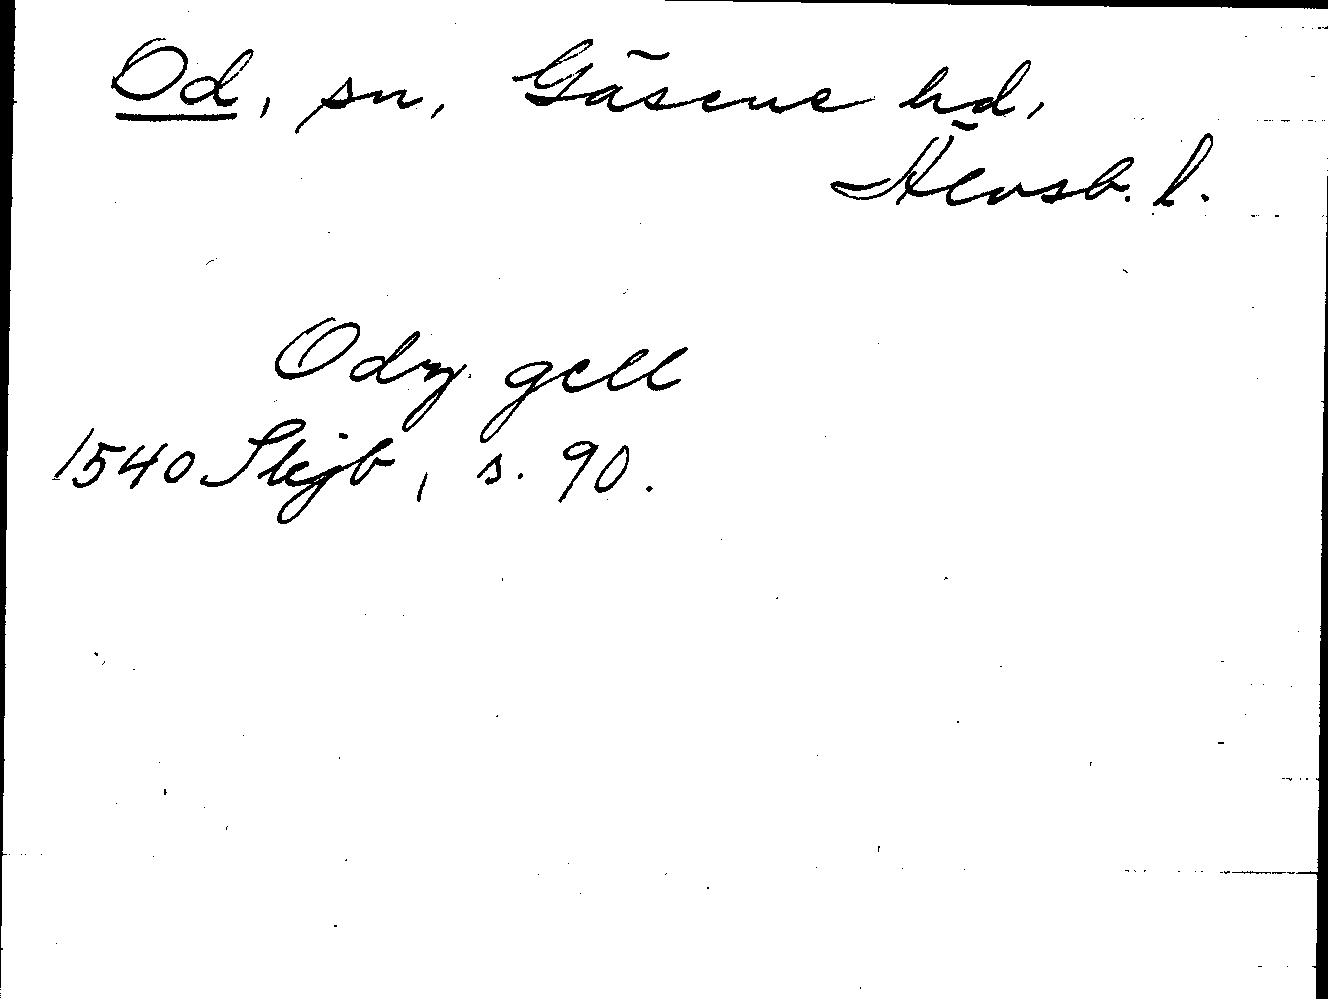 Od, sn, Gäsene hd,
Älvsb. l.
Ody gell
1540 Skjb, s. 90.